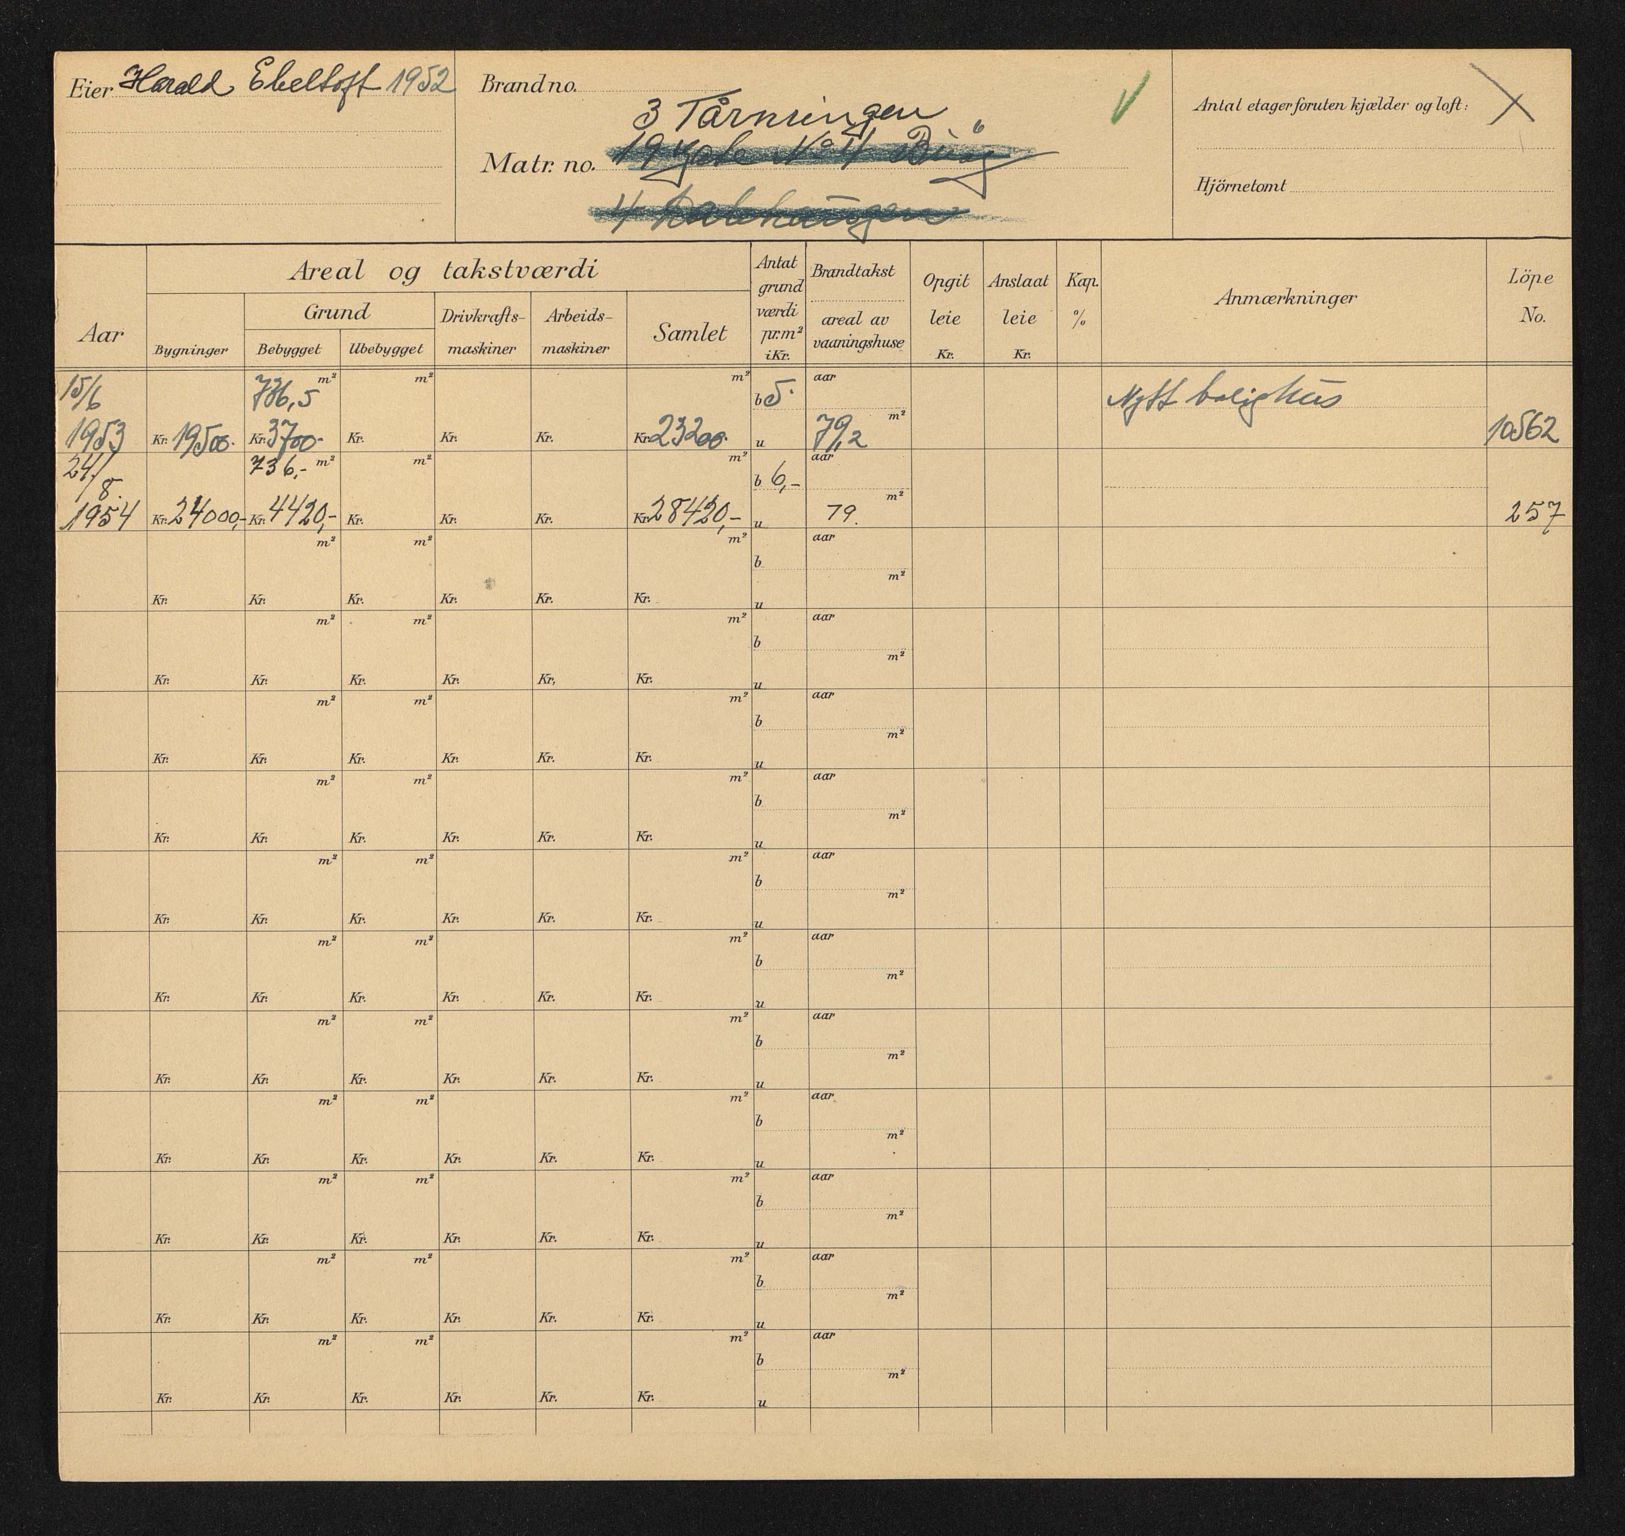 Eier Harald Ebeltoft 1952
Brand no.
3 Tårnsvingen
Matr. no. 19 No 4
4
Antal etager foruten kjælder og loft:
Hjörnetomt
Aar
Areal og takstværdi
Bygninger
Grund
Bebygget
Ubebygget
Drivkrafts-
maskiner
Arbeids-
maskiner
Samlet
Antat
grund
værdi
pr. m²
i Kr.
Brandtakst
areal av
vaaningshuse
Opgit
leie
Kr.
Anslaat
leie
Kr.
Kap.
%
Anmærkninger
Löpe
No.
15/6 736,5 m² m² m² b 5.- aar Nytt bolighus
1953 Kr. 19500.- Kr. 3700.- Kr. Kr. Kr. Kr. 23200.- u 79,2 m² 10562
24/8. 736,- m² m² m² b 6,- aar
1954 Kr. 24000,- Kr. 4420,- Kr. Kr. Kr. Kr. 28420,- u 79. m² 257
m² m² m² b aar
Kr. Kr. Kr. Kr. Kr. Kr. u m²
m² m² m² b aar
Kr. Kr. Kr. Kr. Kr. Kr. u m²
m² m² m² b aar
Kr. Kr. Kr. Kr. Kr. Kr. u m²
m² m² m² b aar
Kr. Kr. Kr. Kr. Kr. Kr. u m²
m² m² m² b aar
Kr. Kr. Kr. Kr. Kr. Kr. u m²
m² m² m² b aar
Kr. Kr. Kr. Kr. Kr. Kr. u m²
m² m² m² b aar
Kr. Kr. Kr. Kr. Kr. Kr. u m²
m² m² m² b aar
Kr. Kr. Kr. Kr. Kr. Kr. u m²
m² m² m² b aar
Kr. Kr. Kr. Kr. Kr. Kr. u m²
m² m² m² b aar
Kr. Kr. Kr. Kr. Kr. Kr. u m²
m² m² m² b aar
Kr. Kr. Kr. Kr. Kr. Kr. u m²